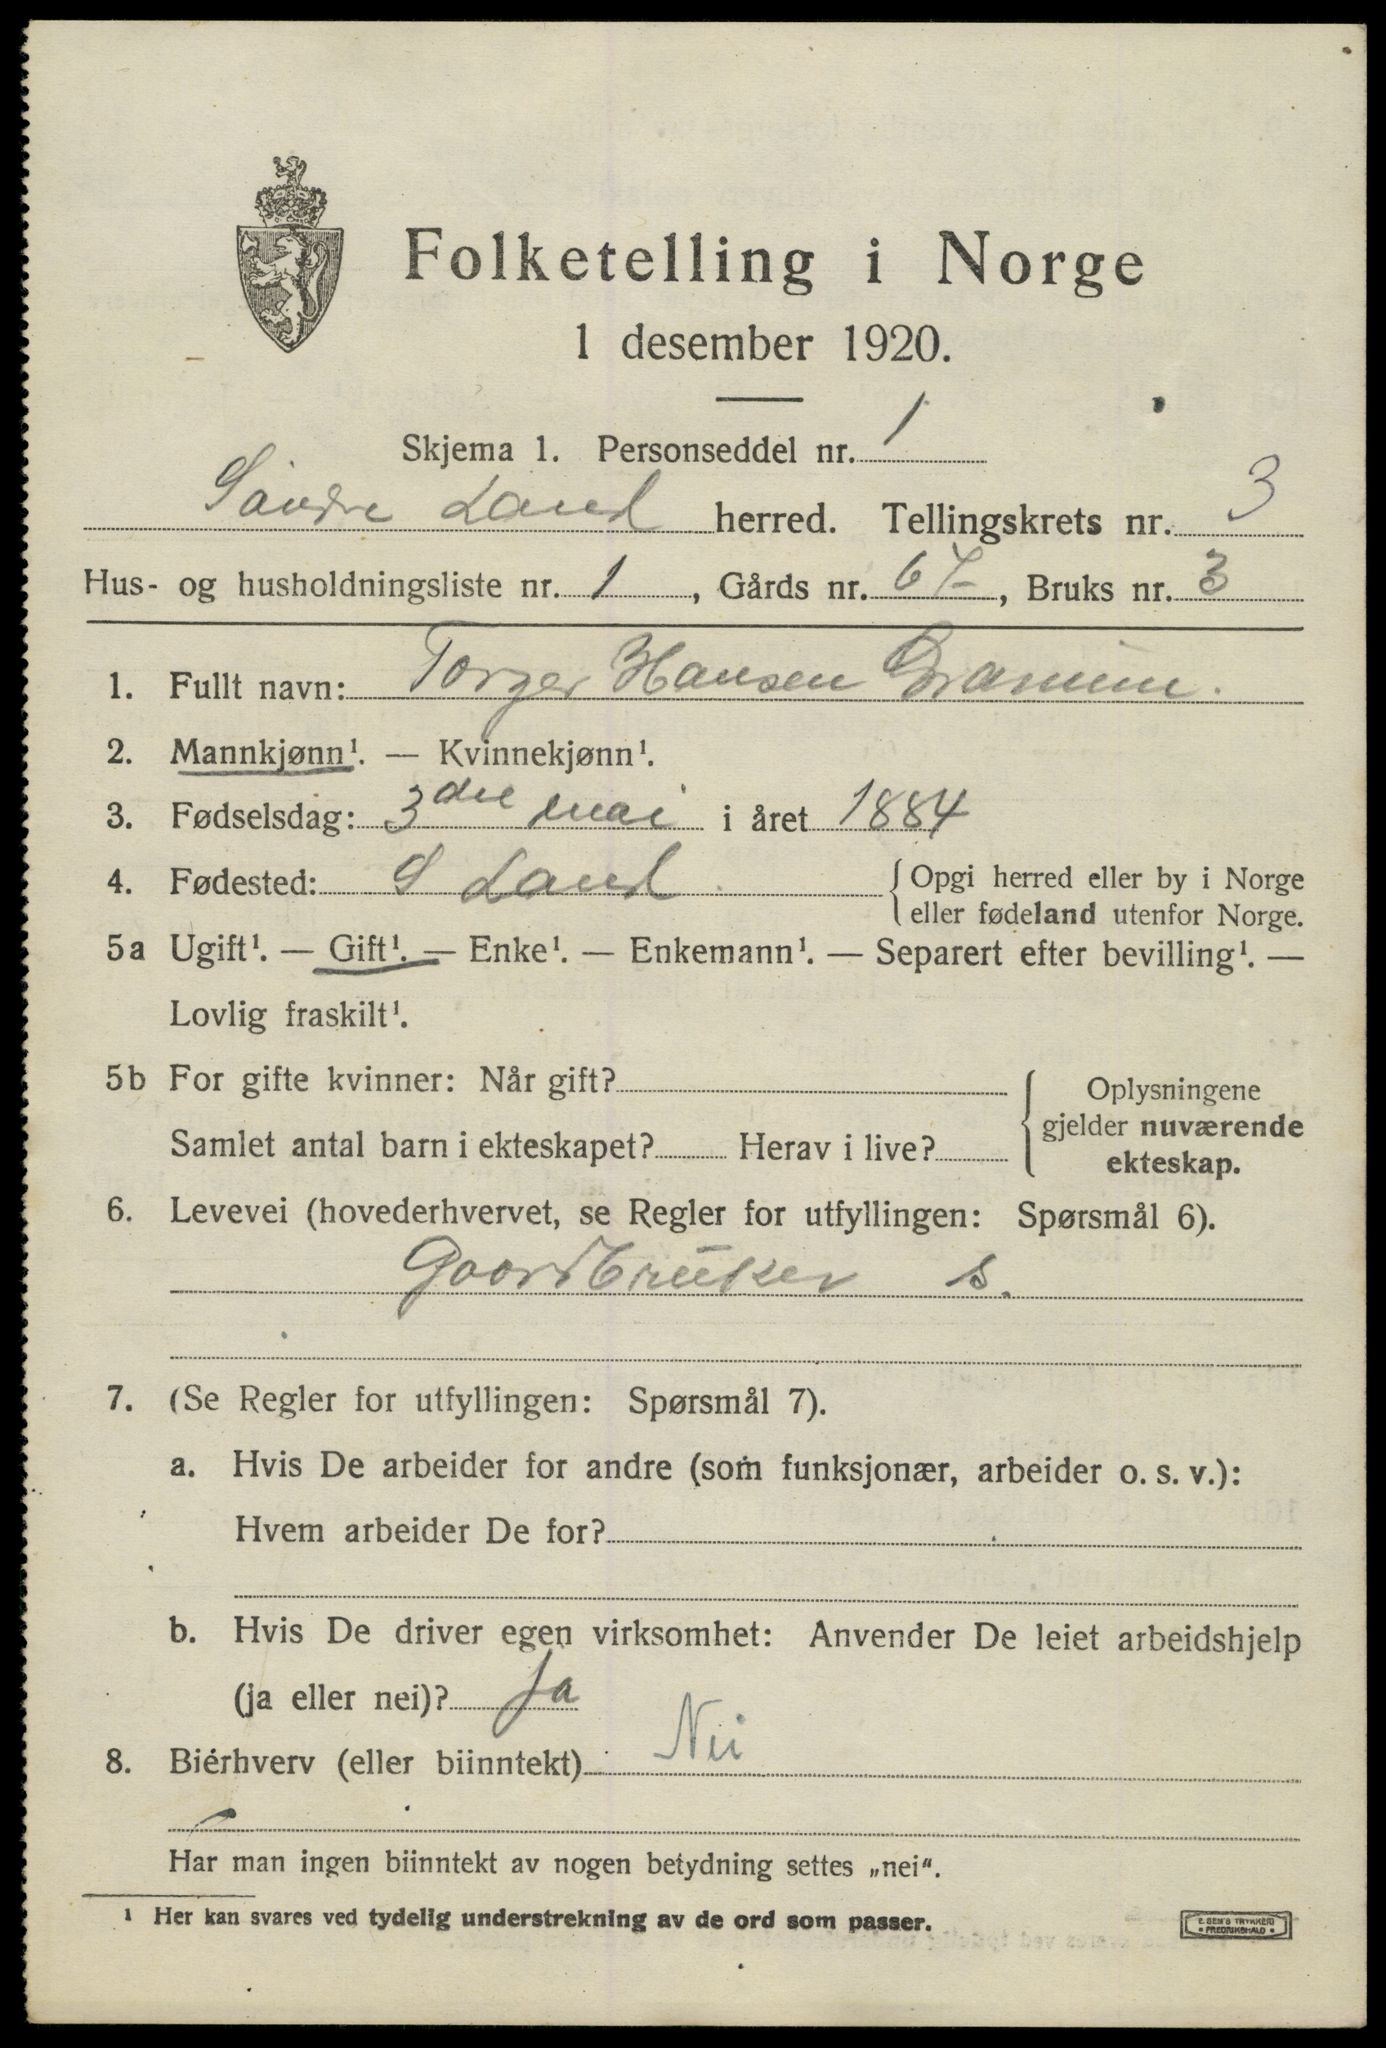 Folketelling i Norge
1 desember 1920.
Skjema 1. Personseddel nr. 1
Søndre Land herred. Tellingskrets nr. 3
Hus- og husholdningsliste nr. 1, Gårds nr. 67, Bruks nr. 3
1. Fullt navn: Torger Hansen
2. Mannkjønn¹. — Kvinnekjønn¹.
3. Fødselsdag: 3die mai i året 1884
4. Fødested: S Land { Opgi herred eller by i Norge
eller fødeland utenfor Norge.
5a Ugift¹. — Gift¹. — Enke¹. — Enkemann¹. — Separert efter bevilling¹. —
Lovlig fraskilt¹.
5b For gifte kvinner: Når gift? { Oplysningene
gjelder nuværende
Samlet antal barn i ekteskapet? Herav i live?
ekteskap.
6. Levevei (hovederhvervet, se Regler for utfyllingen: Spørsmål 6).
Goordbruker s.
7. (Se Regler for utfyllingen: Spørsmål 7).
a. Hvis De arbeider for andre (som funksjonær, arbeider o. s. v.):
Hvem arbeider De for?
b. Hvis De driver egen virksomhet: Anvender De leiet arbeidshjelp
(ja eller nei)? Ja
8. Bierhverv (eller biinntekt) Nei
Har man ingen biinntekt av nogen betydning settes „nei“.
¹ Her kan svares ved tydelig understrekning av de ord som passer.
E. SEM'S TRYKKERI
• FREDRIKSHALD •